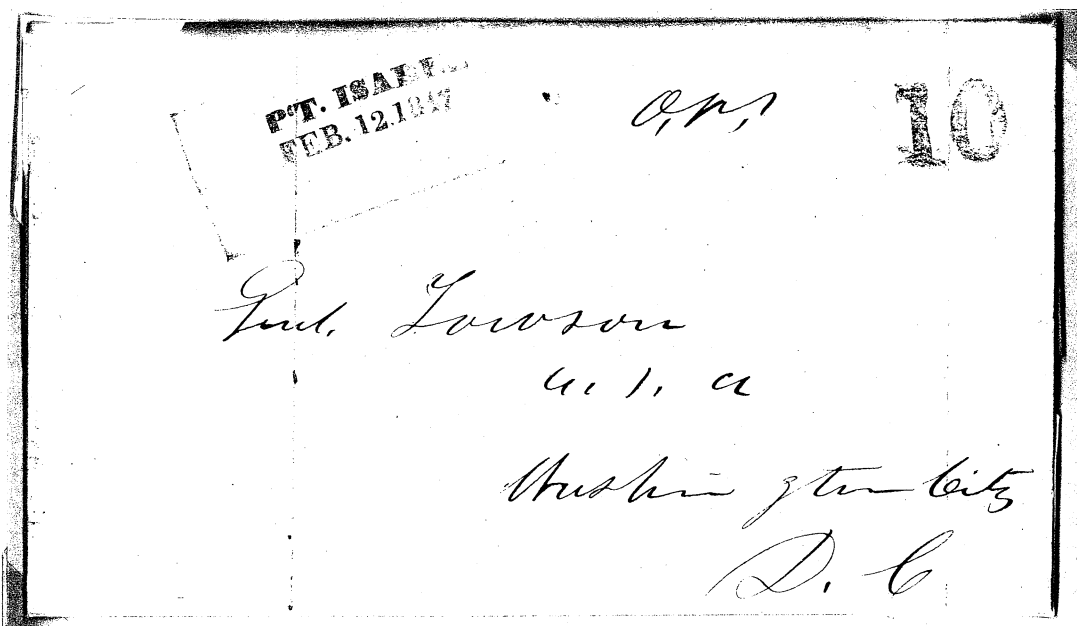 PT. ISABE
FEB. 12.1847
10
Genl. Towson
U. S. A
Washington City
D. C